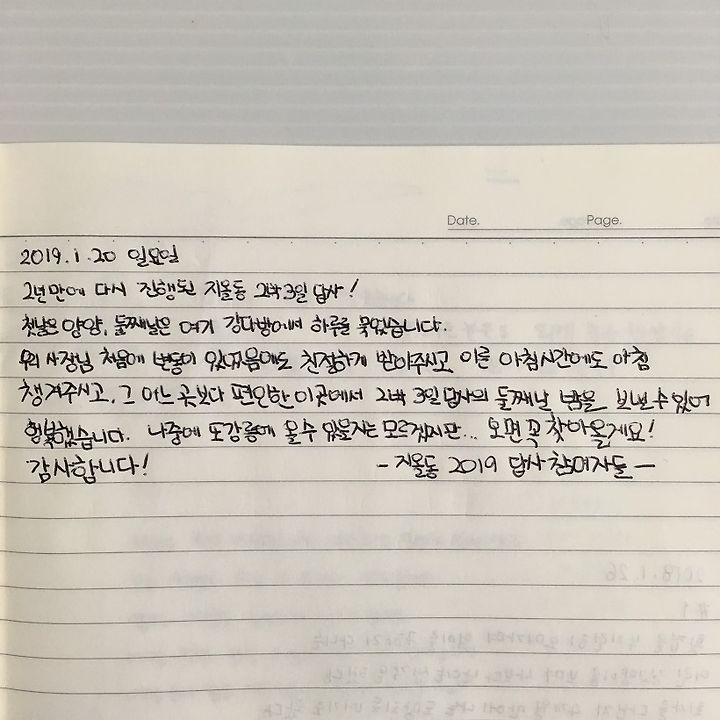 Date. Page.
2019.1.20 일요일
2년만에 다시 진행된 지올동 2박3일 답사!
첫날은 양양, 둘째날은 여기 강다방에서 하루를 묵었습니다.
우리 사장님 처음에 변동이 있었음에도 친절하게 받아주시고 이른 아침시간에도 아침
챙겨주시고, 그 어느 곳보다 편안한 이곳에서 2박 3일 답사의 둘째날 밤을 보낼 수 있어
행복했습니다. 나중에 또 강릉에 올 수 있을지는 모르겠지만... 오면 꼭 찾아올게요!
감사합니다! - 지올동 2019 답사 참여자들 -
2018.1.26
#1